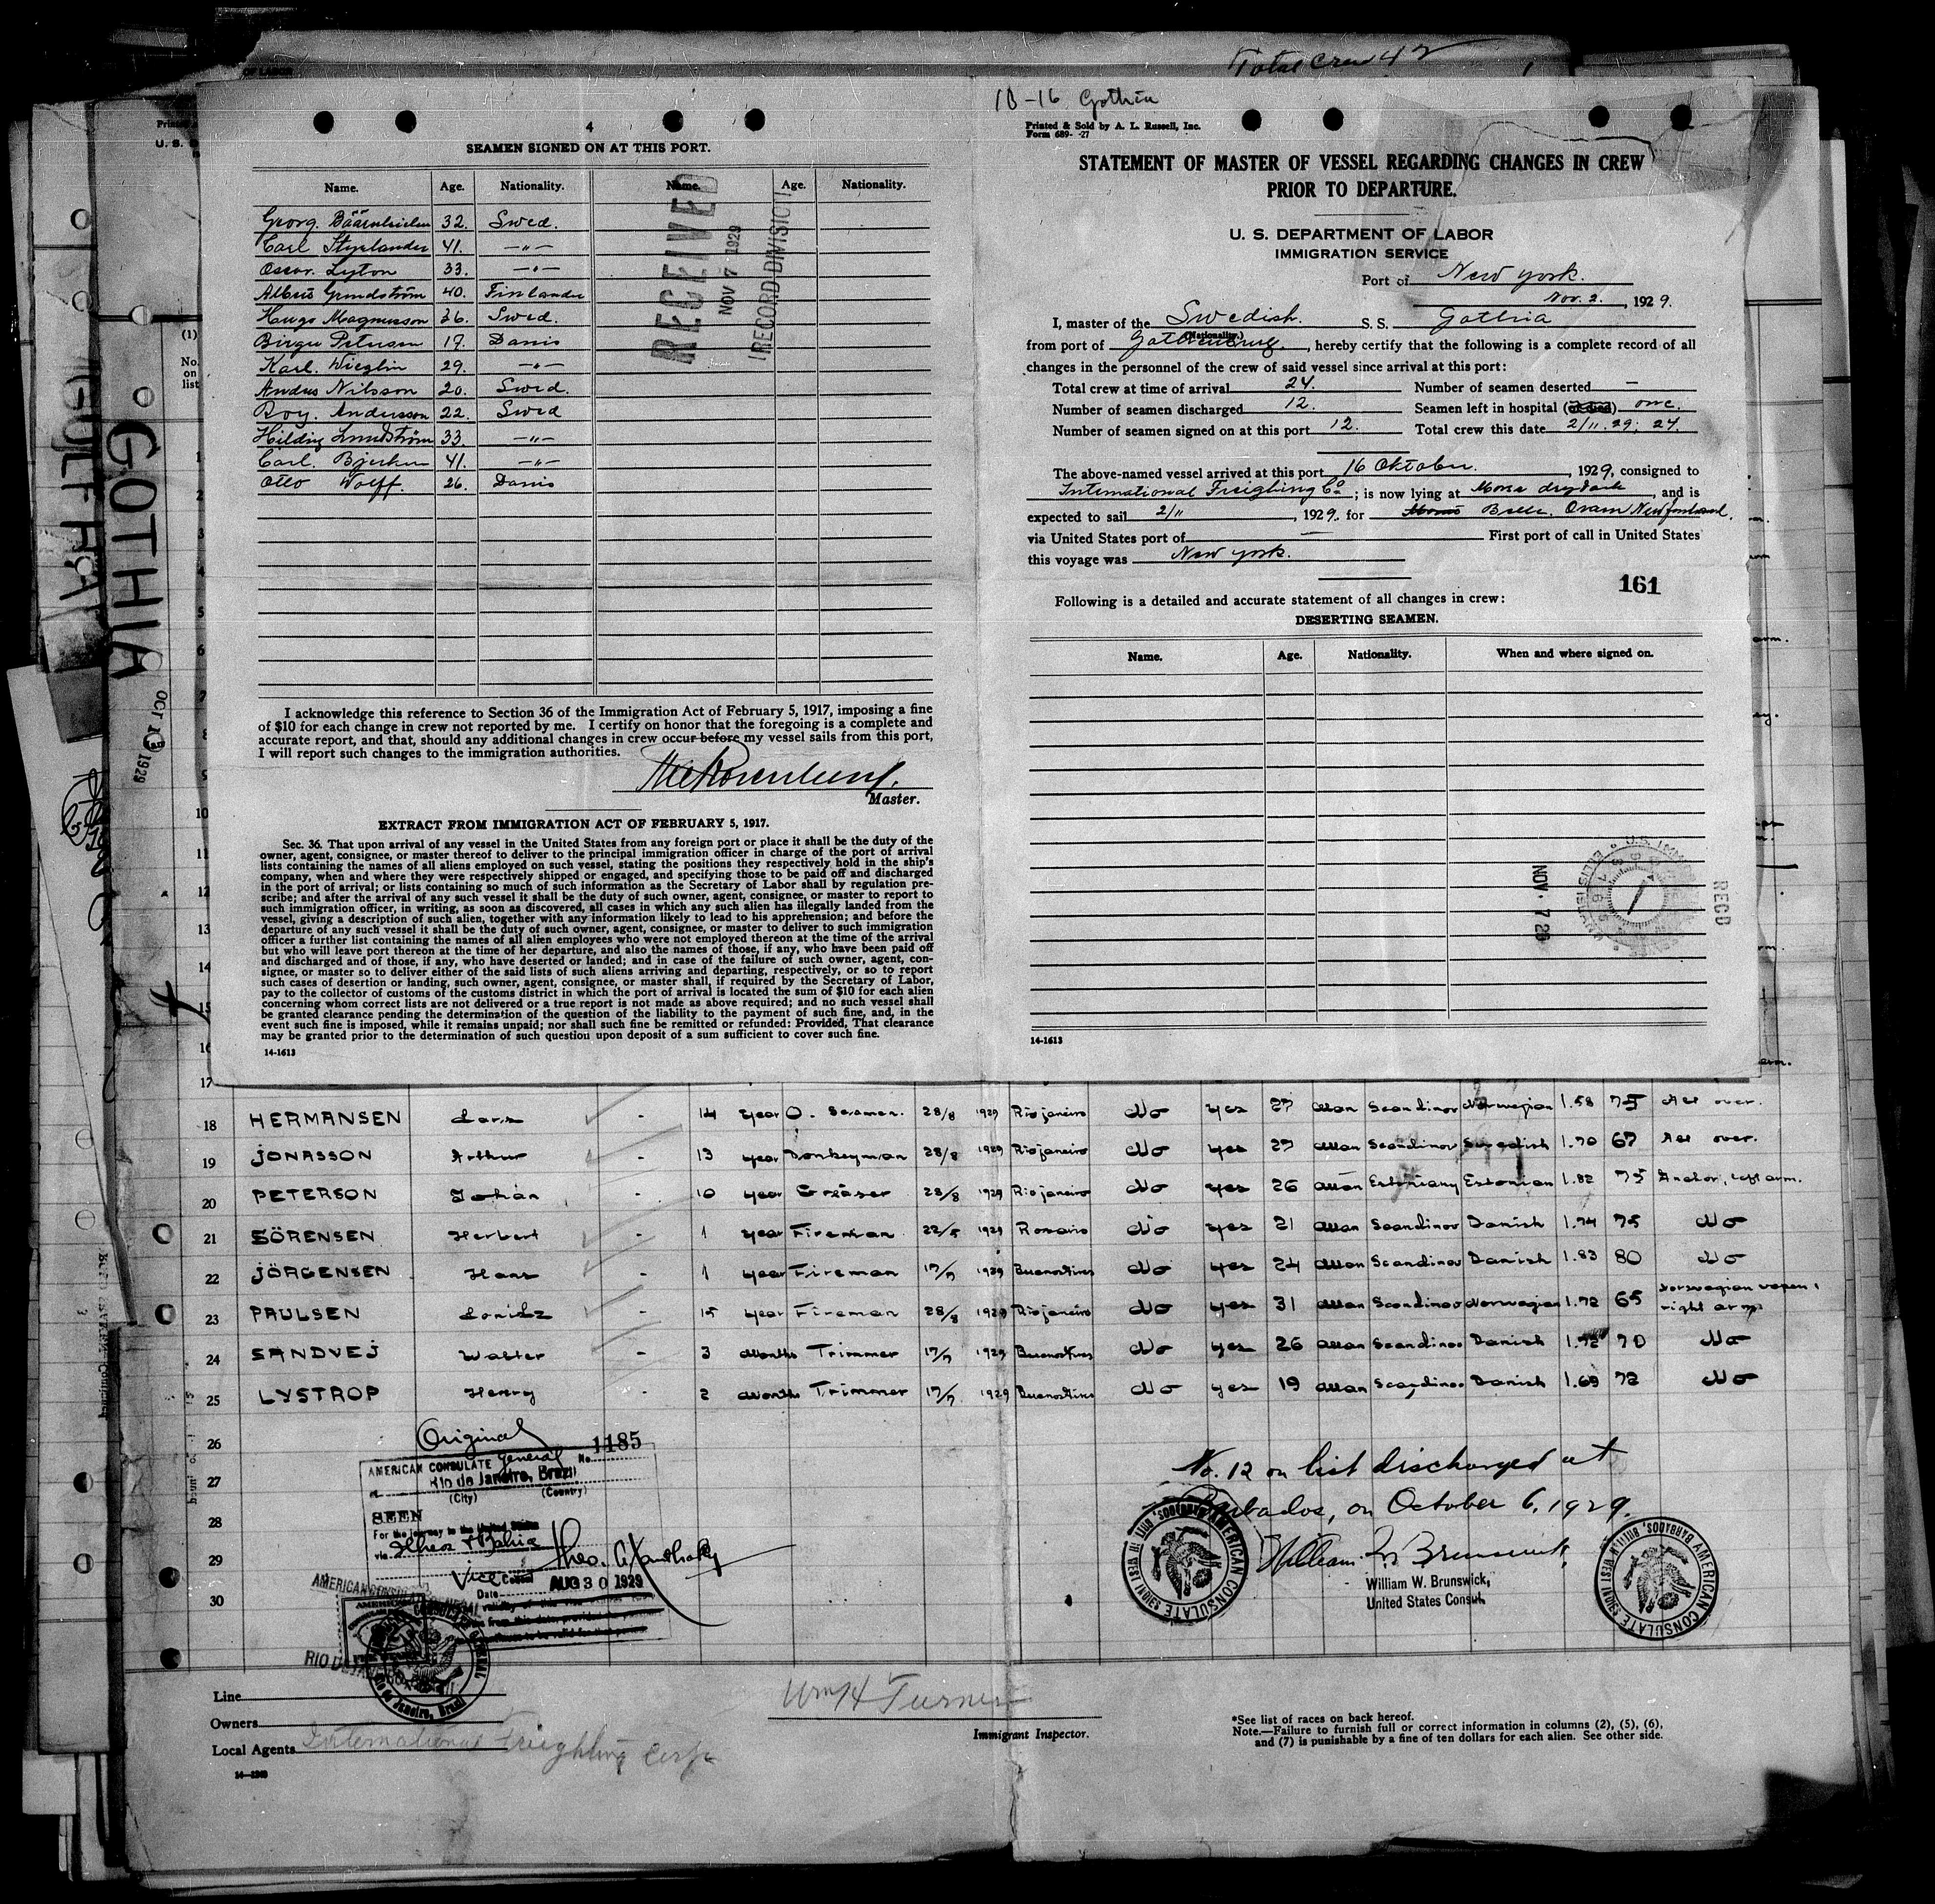 Total Crew 42
10-16 Gothia
4
SEAMEN SIGNED ON AT THIS PORT.
Name. Age. Nationality. Name. Age. Nationality.
Georg. 32. Swed.
Carl Styrlander 41. —"—
Oscar. Lyton 33. —"—
Grundström 40. Finlander
Hugo Magnusson 36. Swed.
Birger Petersen 17. Danis
Karl. Wieglin 29. —"—
Andus Nilsson 20. Swed.
Roy. Andersson 22. Swed
Hilding Lundström 33. —"—
Carl. Bjerken 41. —"—
Otto Wolff. 26. Danis
RECEIVED
NOV 7 1929
RECORD DIVISION
I acknowledge this reference to Section 36 of the Immigration Act of February 5, 1917, imposing a fine
of $10 for each change in crew not reported by me. I certify on honor that the foregoing is a complete and
accurate report, and that, should any additional changes in crew occur before my vessel sails from this port,
I will report such changes to the immigration authorities.
Master.
EXTRACT FROM IMMIGRATION ACT OF FEBRUARY 5, 1917.
Sec. 36. That upon arrival of any vessel in the United States from any foreign port or place it shall be the duty of the
owner, agent, consignee, or master thereof to deliver to the principal immigration officer in charge of the port of arrival
lists containing the names of all aliens employed on such vessel, stating the positions they respectively hold in the ship's
company, when and where they were respectively shipped or engaged, and specifying those to be paid off and discharged
in the port of arrival; or lists containing so much of such information as the Secretary of Labor shall by regulation pre-
scribe; and after the arrival of any such vessel it shall be the duty of such owner, agent, consignee, or master to report to
such immigration officer, in writing, as soon as discovered, all cases in which any such alien has illegally landed from the
vessel, giving a description of such alien, together with any information likely to lead to his apprehension; and before the
departure of any such vessel it shall be the duty of such owner, agent, consignee, or master to deliver to such immigration
officer a further list containing the names of all alien employees who were not employed thereon at the time of the arrival
but who will leave port thereon at the time of her departure, and also the names of those, if any, who have been paid off
and discharged and of those, if any, who have deserted or landed; and in case of the failure of such owner, agent, con-
signee, or master so to deliver either of the said lists of such aliens arriving and departing, respectively, or so to report
such cases of desertion or landing, such owner, agent, consignee, or master shall, if required by the Secretary of Labor,
pay to the collector of customs of the customs district in which the port of arrival is located the sum of $10 for each alien
concerning whom correct lists are not delivered or a true report is not made as above required; and no such vessel shall
be granted clearance pending the determination of the question of the liability to the payment of such fine, and, in the
event such fine is imposed, while it remains unpaid; nor shall such fine be remitted or refunded: Provided, That clearance
may be granted prior to the determination of such question upon deposit of a sum sufficient to cover such fine.
14-1613
Printed & Sold by A. L. Russell, Inc.
Form 689- -27
STATEMENT OF MASTER OF VESSEL REGARDING CHANGES IN CREW
PRIOR TO DEPARTURE.
U. S. DEPARTMENT OF LABOR
IMMIGRATION SERVICE
Port of New York.
Nov. 2. , 1929.
I, master of the Swedish. S. S. Gothia
(Nationality.)
from port of Gothenburg. , hereby certify that the following is a complete record of all
changes in the personnel of the crew of said vessel since arrival at this port:
Total crew at time of arrival 24. Number of seamen deserted —
Number of seamen discharged 12. Seamen left in hospital (or died) one.
Number of seamen signed on at this port 12. Total crew this date 2/11. 29; 24.
The above-named vessel arrived at this port 16 Oktober. , 1929, consigned to
International Freighing Co ; is now lying at Morse drydock , and is
expected to sail 2/11 , 1929. for Belle. Oram Newfunland.
via United States port of — First port of call in United States
this voyage was New York.
161
Following is a detailed and accurate statement of all changes in crew:
DESERTING SEAMEN.
Name. Age. Nationality. When and where signed on.
NOV. 7 29
RECD
14-1613
GOTHIA
OCT 1929
18 HERMANSEN Lars - 14 year O. Seaman. 28/8 1929 Rio janeiro No yes 27 Man Scandinav Norwegian 1.58 75 All over.
19 JONASSON Arthur - 13 year Donkeyman 28/8 1929 Rio janeiro No yes 27 Man Scandinav Swedish 1.70 67 All over.
20 PETERSON Johan - 10 year Greaser 28/8 1929 Rio janeiro No yes 26 Man Estoniany Estonian 1.82 75 Anchor, left arm.
21 SÖRENSEN Herbert - 1 year Fireman 22/5 1929 Rosario No yes 21 Man Scandinav Danish 1.74 75 No
22 JÖRGENSEN Hans - 1 year Fireman 17/7 1929 Buenos Aires No yes 24 Man Scandinav Danish 1.83 80 No
23 PAULSEN Loritz - 15 year Fireman 28/8 1929 Rio janeiro No yes 31 Man Scandinav Norwegian 1.72 65 Norwegian vapen, right arm
24 SANDVEJ Walter - 3 Months Trimmer 17/7 1929 Buenos Aires No yes 26 Man Scandinav Danish 1.72 70 No
25 LYSTROP Henry - 2 Months Trimmer 17/7 1929 Buenos Aires No yes 19 Man Scandinav Danish 1.69 72 No
26
27
28
29
30
Original
AMERICAN CONSULATE General No. 1185
Rio de Janeiro, Brazil
(City) (Country)
SEEN
For the journey to the United States
via Ilheos & Bahia
Vice Consul
Date AUG 30 1929
No. 12 on list discharged at
Barbados, on October 6, 1929.
William W. Brunswick,
United States Consul.
AMERICAN CONSULATE BARBADOS, BRITISH WEST INDIES
AMERICAN CONSULATE BARBADOS, BRITISH WEST INDIES
Line
Owners
Local Agents International Freighting Corp.
14—1240
Wm H Turner
Immigrant Inspector.
*See list of races on back hereof.
Note.—Failure to furnish full or correct information in columns (2), (5), (6),
and (7) is punishable by a fine of ten dollars for each alien. See other side.